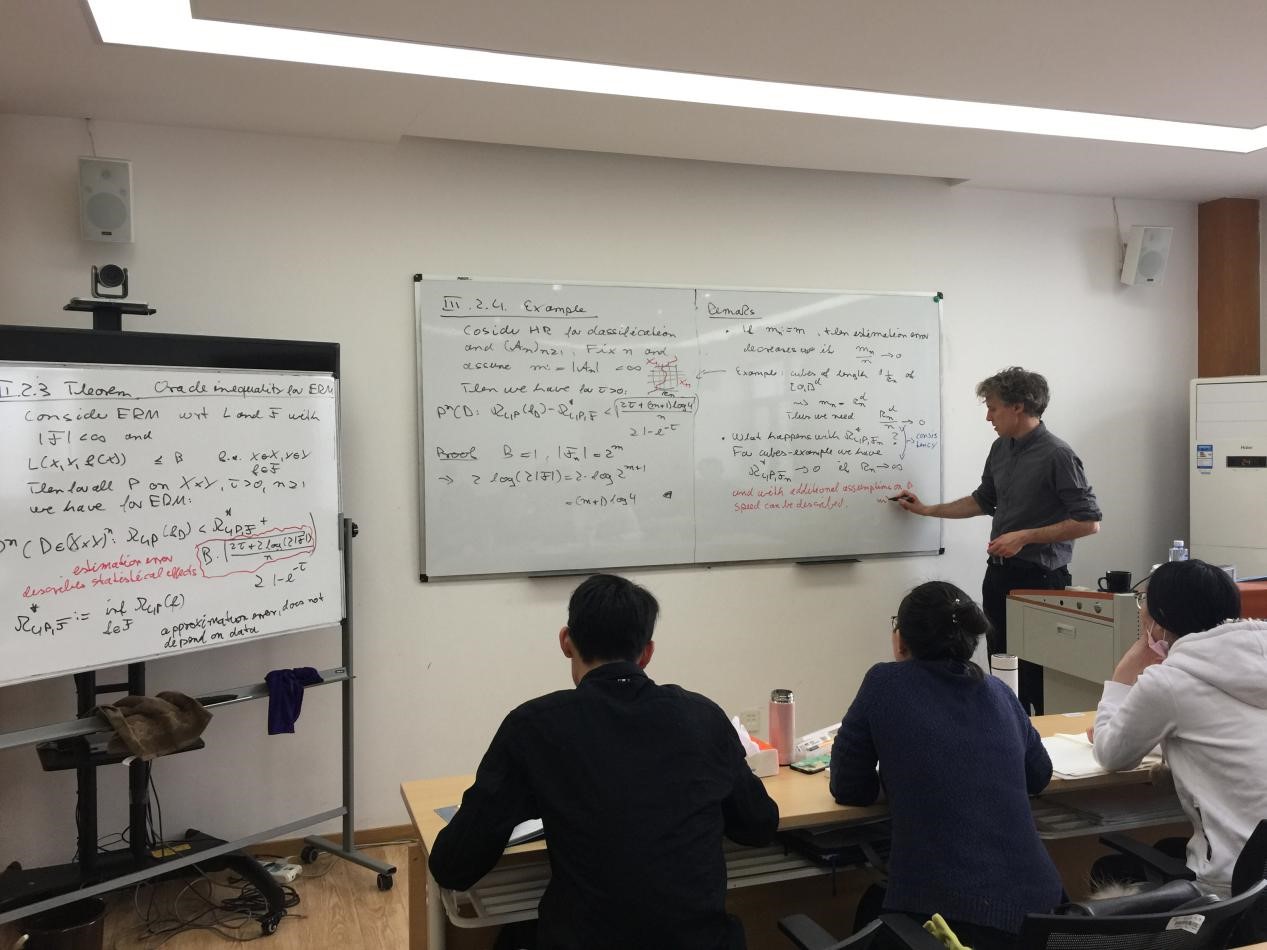 II.2.3 Theorem Oracle inequality for ERM
Conside ERM wrt L and F with
|F| < ∞ and
L(x, y, f(x)) ≤ B f.a. x∈X, y∈Y
f∈F
Then for all P on X×Y, τ>0, n≥1
we have for ERM:
Pⁿ(D∈(X×Y)ⁿ: R_{L,P}(f_D) < R*_{L,P,F} +
B·√((2τ+2 log(2|F|))/n)
estimation error
describes statistical effects
≥ 1-e^{-τ}
R*_{L,P,F} := inf R_{L,P}(f)
f∈F
approximation error, does not
depend on data
III.2.4. Example
Coside HR for classification
and (An)n≥1. Fix n and
assume m := |An| < ∞
Then we have for τ>0:
Pⁿ(D: R_{L,P}(f_D) - R*_{L,P,F} < √((2τ+(m+1)log4)/n)
≥ 1-e^{-τ}
Proof B=1, |Fn| = 2^m
⇒ 2 log(2|F|) = 2·log 2^{m+1}
= (m+1) log 4
Remarks
• If mn=m, then estimation error
decreases if mn/n → 0
Example: cubes of length 1/kn of
[0,1]^d
⇒ mn = kn^d
Thus we need kn^d/n → 0
• What happens with R*_{L,P,Fn}?
consis
tency
For cubes-example we have
R*_{L,P,Fn} → 0 if kn→∞
and with additional assumptions on P
speed can be described.
Haier